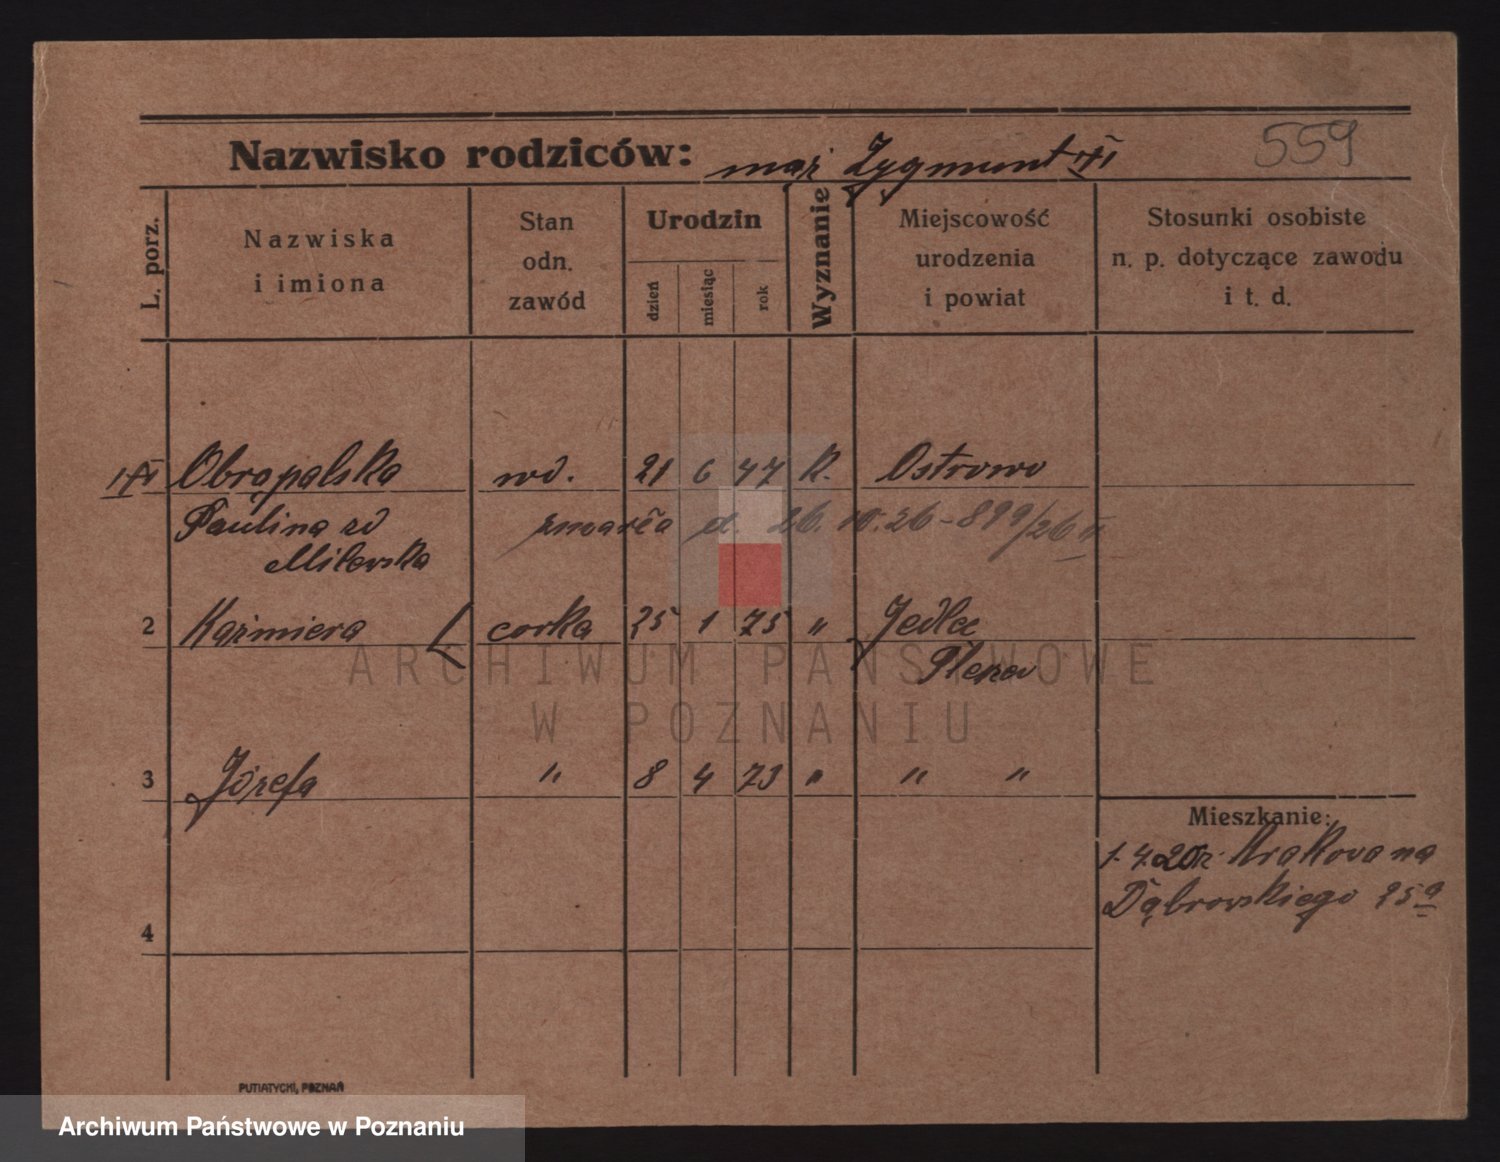 Nazwisko rodziców: mąż Zygmunt
559
L. porz.
Nazwiska
i imiona
Stan
odn.
zawód
Urodzin
dzień
miesiąc
rok
Wyznanie
Miejscowość
urodzenia
i powiat
Stosunki osobiste
n. p. dotyczące zawodu
i t. d.
1 Obrąpalska wd. 21 6 47 k. Ostrowo
Paulina zd zmarła d. 26. 10. 26 - 899/26 II
Milewska
2 Kaźmiera córka 25 1 75 " Jedlec
Pleszew
3 Józefa " 8 4 73 " " "
Mieszkanie:
1. 4. 20r. Krakowa na
Dąbrowskiego 25a
4
PUTIATYCKI, POZNAŃ
ARCHIWUM PAŃSTWOWE
W POZNANIU
Archiwum Państwowe w Poznaniu